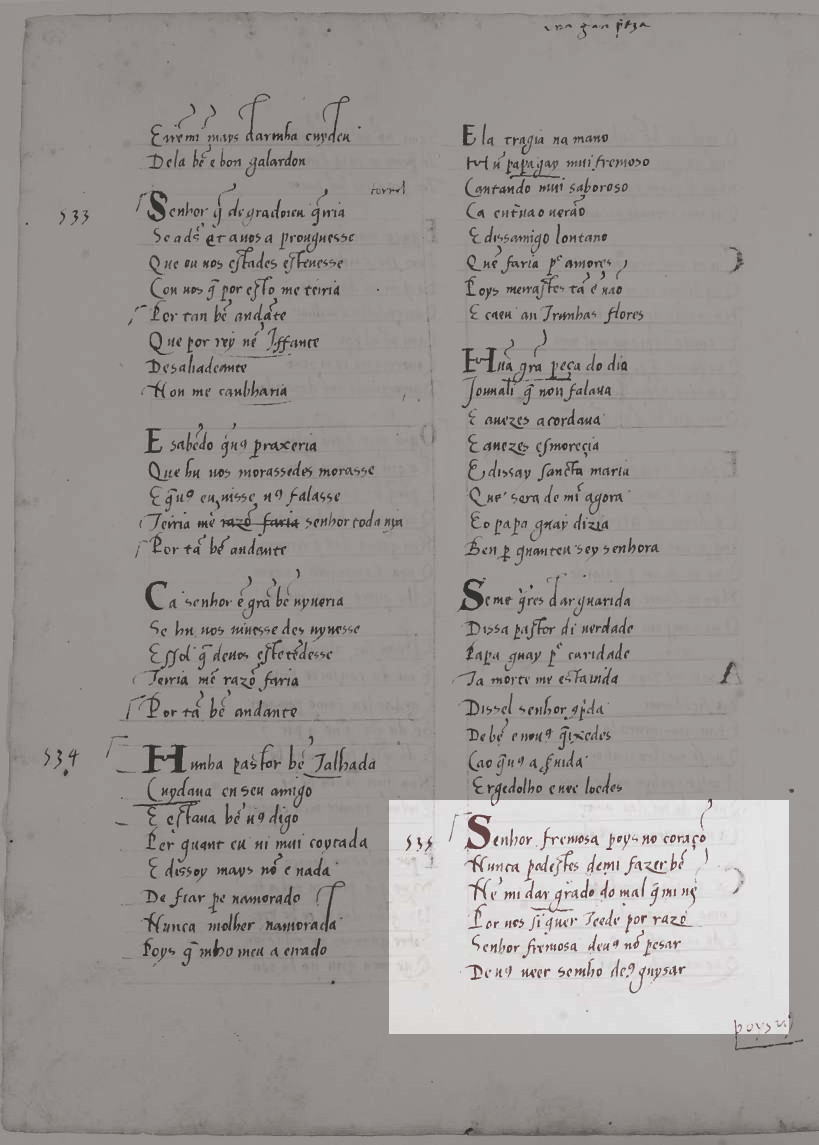 Eirẽmi mays darmha cuydeu
Dela bẽ e bon galardon
tornel
533
Senhor q̃ de gradoieu q̃ria
Se ads̃ et a uos a prouguesse
Que ou uos estades esteuesse
Con uos q̃ por esto me teiria
Por tan bẽ andãte
Que por rey nẽ Iffante
Desaliadeante
Non me canbharia
E sabẽdo q̃ uꝯ prazeria
Que hu uos morassedes morasse
E q̃ uꝯ eu uisse uꝯ falasse
Teiria mẽ razõ faria senhor toda uya
Por tã bẽ andante
Ca senhor ẽ grã bẽ uyueria
Se hu uos uiuesse des uyuesse
Essol q̃ deuos estetẽdesse
Teiria mẽ razõ faria
Por tã bẽ andante
534
Hunha pastor bẽ Talhada
Cuydaua en seu amigo
E estaua bẽ uꝯ digo
Per quant eu ui mui coytada
E dissoy mays nõ e nada
De fiar pe namorado
Nunca molher namorada
Poys q̃ mho meu a errado
Ela tragia na mano
Hu papagay mui fremoso
Cantando mui saboroso
Ca entraua o uerão
E dissamigo lontano
Que faria pᵉ amores
Poys merrastes tã ẽ uão
E caeu an Trunhas flores
Hũa grã peça do dia
Jouuali q̃ non falaua
E auezes acordaua
E auezes esmoreçia
E dissay sancta maria
Que sera de mĩ agora
Eo papa guay dizia
Ben p quanteu sey senhora
Seme q̃res dar guarida
Dissa pastor di uerdade
Papa guay pᵉ caridade
Ta morte me esta uida
Dissel senhor ꝯp̃da
De bẽ e nouꝯ q̃ixedes
Cao q̃ uꝯ a seruida
Ergedolho e uee loedes
535
Senhor fremosa poys no coraçõ
Nunca podestes demi fazer bẽ
Nẽ mi dar grado do mal q̃ mi uẽ
Por uos siquer Teede por razõ
Senhor fremosa deuꝯ nõ pesar
Deuꝯ ueer semho deꝯ guysar
poys uꝯ